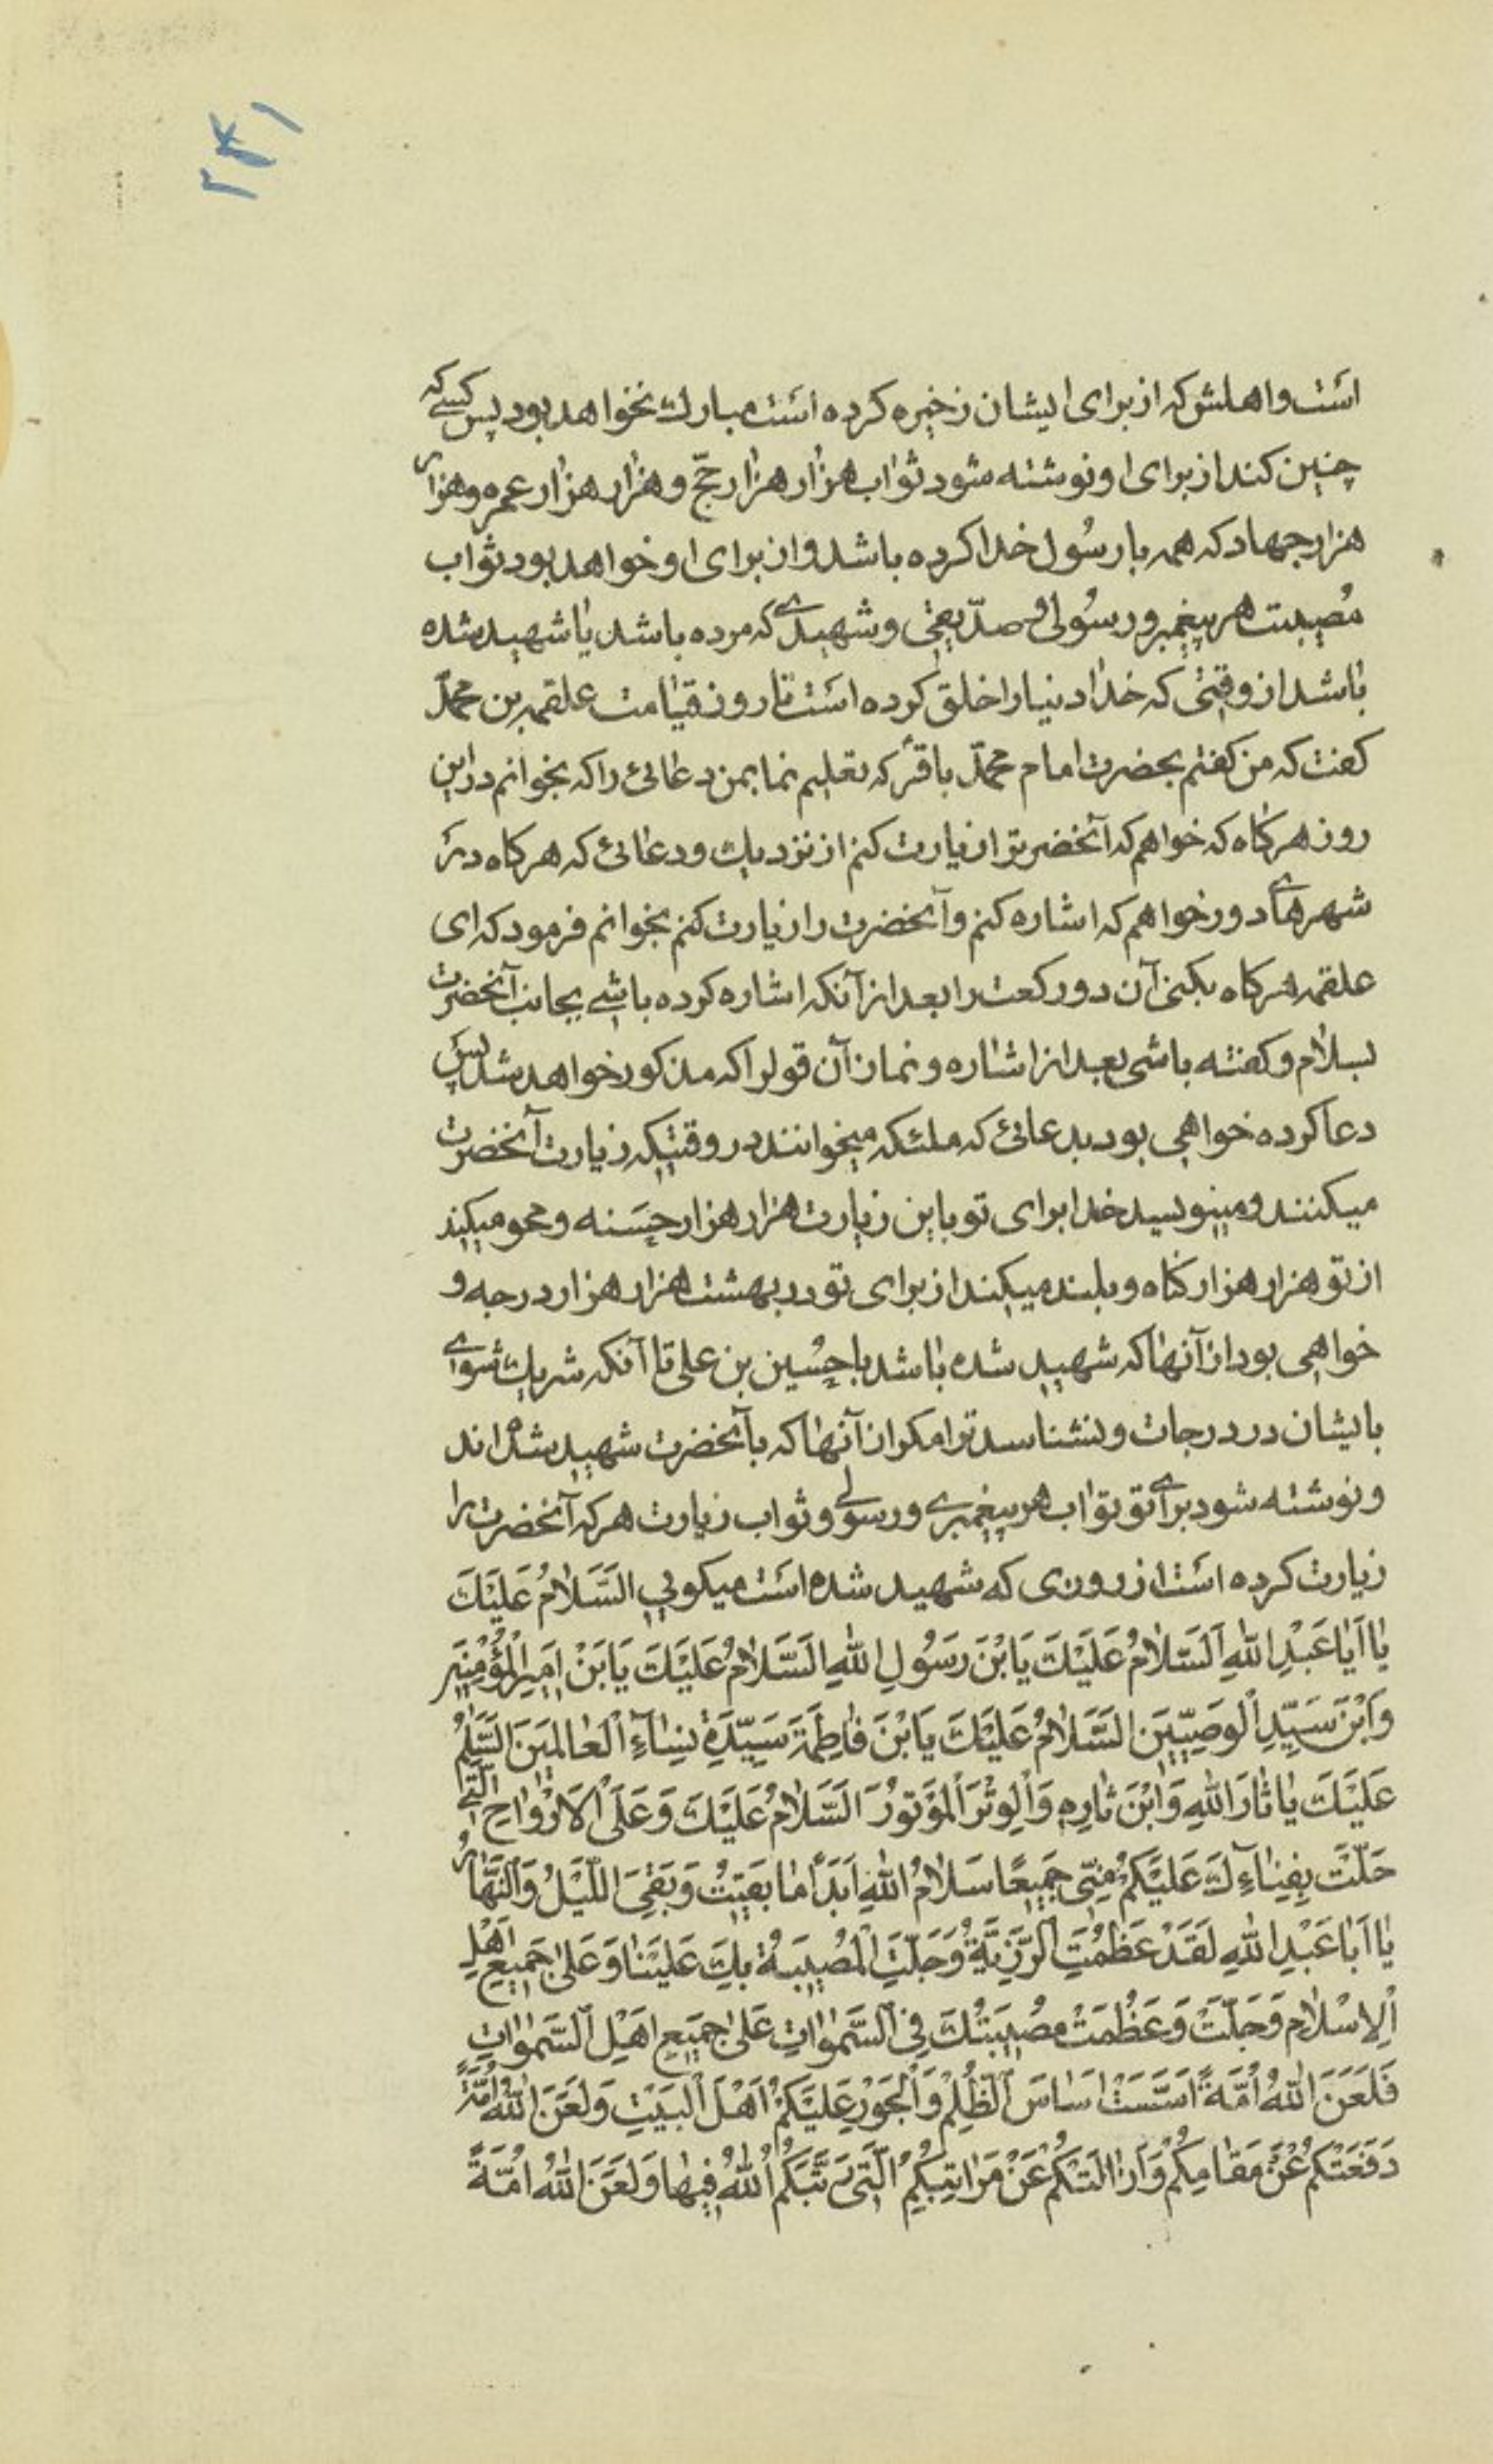 ۲۴۱
است و اهلش که از برای ایشان زخیره کرده است مبارک نخواهد بود پس کسی که
چنین کند از برای او نوشته شود ثواب هزار هزار حجّ و هزار هزار عمره و هزار
هزار جهاد که همه با رسُول خدا کرده باشد و از برای او خواهد بود ثواب
مُصیبت هر پیغمبر و رسُولی و صدّیقی و شهیدی که مرده باشد یا شهید شده
باشد از وقتی که خدا دنیا را خلق کرده است تا روز قیامت علقمه بن محمّد
کفت که من کفتم بحضرت امام محمّد باقرؑ که تعلیم نما بمن دعائی را که بخوانم در این
روز هر کاه که خواهم که آنحضرترا زیارت کنم از نزدیک و دعائی که هر کاه در
شهرهای دور خواهم که اشاره کنم و آنحضرت را زیارت کنم بخوانم فرمود که ای
علقمه هر کاه بکنی آن دو رکعت را بعد از آنکه اشاره کرده باشی بجانب آنحضرت
بسلام و کفته باشی بعد از اشاره و نماز آن قولرا که مذکور خواهد شد پس
دعا کرده خواهی بود بدعائی که ملئکه میخوانند در وقتیکه زیارت آنحضرت
میکنند و مینویسید خدا برای تو باین زیارت هزار هزار حسَنه و محو میکند
از تو هزار هزار کناه و بلند میکند از برای تو در بهشت هزار هزار درجه و
خواهی بود از آنها که شهید شده باشد با حسُین بن علی تا آنکه شریک شوی
بایشان در درجات و نشناسد ترا مکر از آنها که با آنحضرت شهید شده‌اند
و نوشته شود برای تو ثواب هر پیغمبری و رسولی و ثواب زیارت هر که آنحضرت را
زیارت کرده است از روزی که شهید شده است میکویی السَّلامُ عَلَیْكَ
یا اَبا عَبْدِ اللّٰهِ اَلسَّلامُ عَلَیْكَ یَا بْنَ رَسُولِ اللّٰهِ السَّلامُ عَلَیْكَ یَا بَنْ اَمِیرِ الْمُؤْمِنِینَ
وَابْنَ سَیِّدِ الْوَصِیّینَ السَّلامُ عَلَیْكَ یَا بْنَ فاطِمَةَ سَیِّدَةِ نِسٰاءِ الْعالَمینَ السَّلٰمُ
عَلَیْكَ یا ثارَ اللّٰهِ وَابْنَ ثارِهِ وَالْوِتْرَ الْمَوْتُورَ السَّلامُ عَلَیْكَ وَعَلَی الْاَرْواحِ الَّتی
حَلَّتْ بِفِنٰاءِكَ عَلَیْکُمْ مِنّی جَمیعًا سَلامُ اللّٰهِ اَبَدًا ما بَقیتُ وَبَقِیَ اللَّیْلُ وَالنَّهارُ
یا اَبا عَبْدِ اللّٰهِ لَقَدْ عَظُمَتِ الرَّزِیَّةُ وَجَلَّتِ الْمُصیبَةُ بِكَ عَلَیْنا وَعَلی جَمیعِ اَهْلِ
الْاِسْلامِ وَجَلَّتْ وَعَظُمَتْ مُصیبَتُكَ فِی السَّمٰواتِ عَلی جَمیعِ اَهْلِ السَّمٰواتِ
فَلَعَنَ اللّٰهُ اُمَّةً اَسَّسَتْ اَساسَ الظُّلْمِ وَالْجَوْرِ عَلَیْکُمْ اَهْلَ الْبَیْتِ وَلَعَنَ اللّٰهُ اُمَّةً
دَفَعَتْکُمْ عَنْ مَقامِکُمْ وَاَزالَتْکُمْ عَنْ مَراتِبِکُمُ الَّتی رَتَّبَکُمُ اللّٰهُ فیها وَلَعَنَ اللّٰهُ اُمَّةً